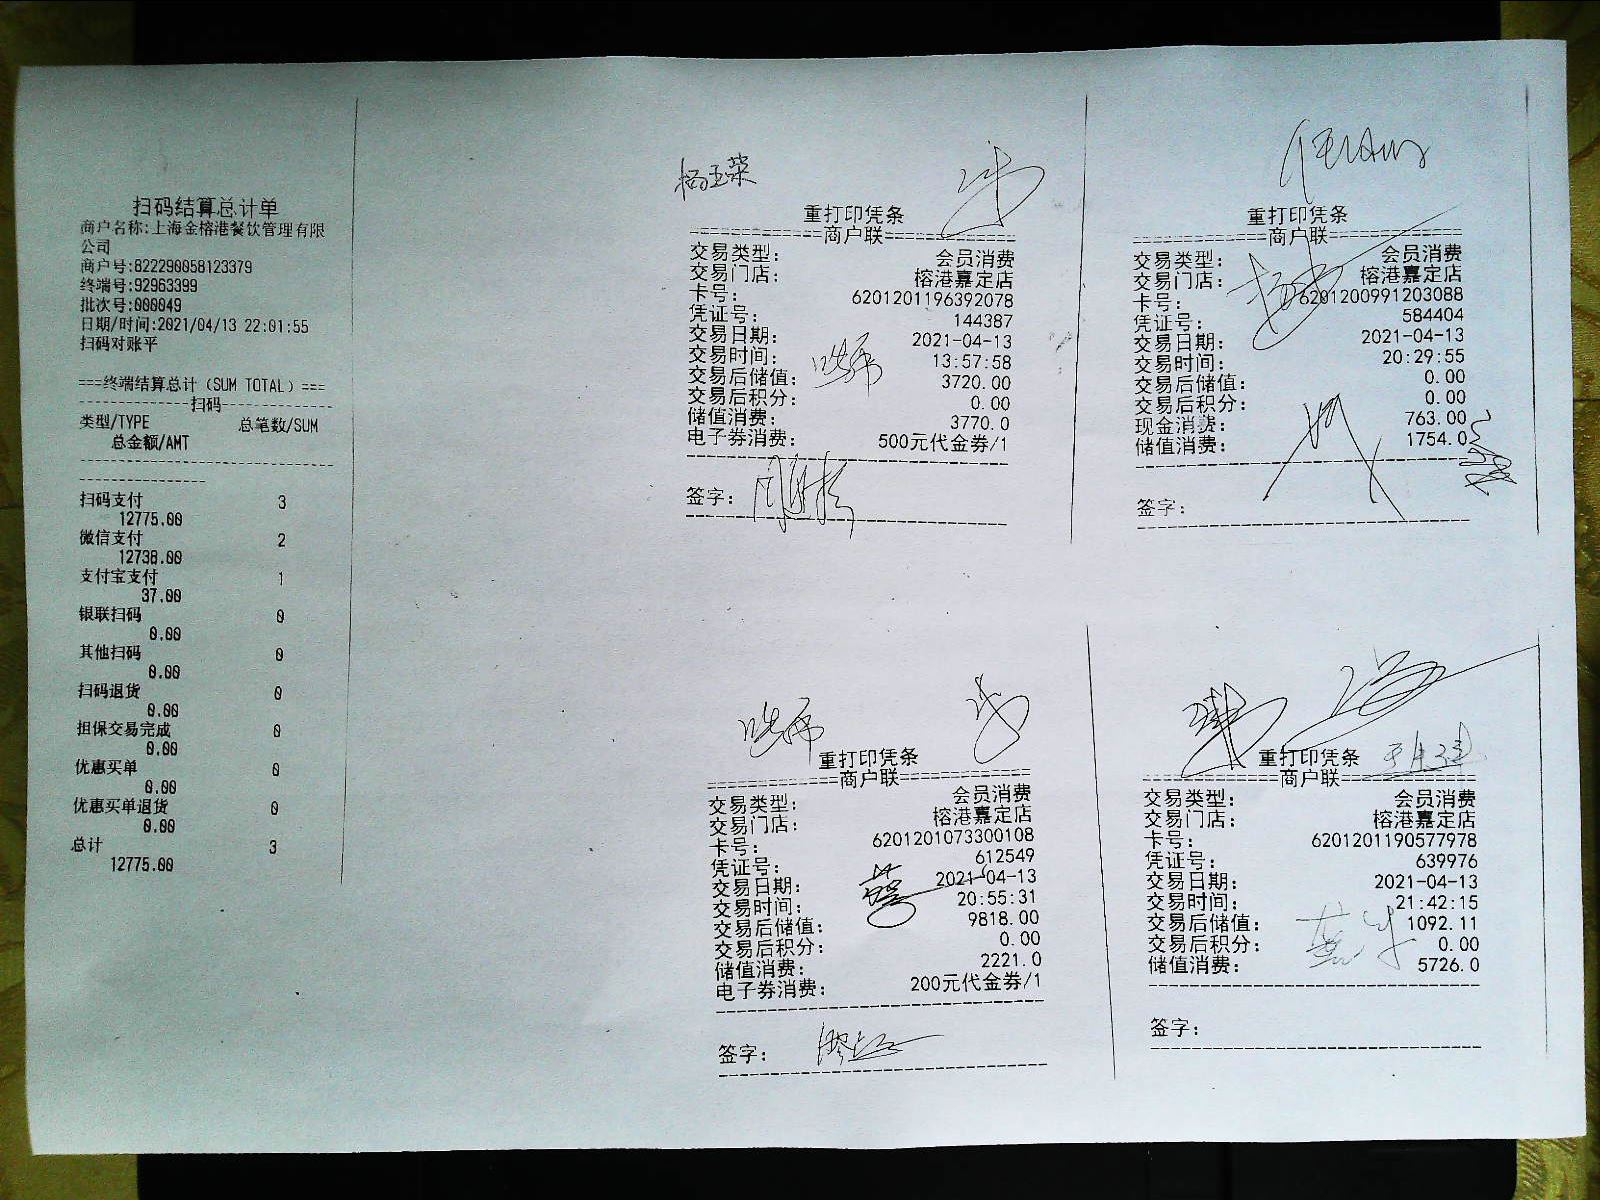 扫码结算总计单
商户名称:上海金榕港餐饮管理有限
公司
商户号:822290058123379
终端号:92963399
批次号:000049
日期/时间:2021/04/13 22:01:55
扫码对账平
===终端结算总计(SUM TOTAL)===
扫码
类型/TYPE 总笔数/SUM
总金额/AMT
扫码支付 3
12775.00
微信支付 2
12738.00
支付宝支付 1
37.00
银联扫码 0
0.00
其他扫码 0
0.00
扫码退货 0
0.00
担保交易完成 0
0.00
优惠买单 0
0.00
优惠买单退货 0
0.00
总计 3
12775.00
杨玉荣
重打印凭条
商户联
交易类型: 会员消费
交易门店: 榕港嘉定店
卡号: 6201201196392078
凭证号: 144387
交易日期: 2021-04-13
交易时间: 13:57:58
交易后储值: 3720.00
交易后积分: 0.00
储值消费: 3770.0
电子券消费: 500元代金券/1
签字:
重打印凭条
商户联
交易类型: 会员消费
交易门店: 榕港嘉定店
卡号: 6201200991203088
凭证号: 584404
交易日期: 2021-04-13
交易时间: 20:29:55
交易后储值: 0.00
交易后积分: 0.00
现金消费: 763.00
储值消费: 1754.0
签字:
重打印凭条
商户联
交易类型: 会员消费
交易门店: 榕港嘉定店
卡号: 6201201073300108
凭证号: 612549
交易日期: 2021-04-13
交易时间: 20:55:31
交易后储值: 9818.00
交易后积分: 0.00
储值消费: 2221.0
电子券消费: 200元代金券/1
签字:
重打印凭条
商户联
交易类型: 会员消费
交易门店: 榕港嘉定店
卡号: 6201201190577978
凭证号: 639976
交易日期: 2021-04-13
交易时间: 21:42:15
交易后储值: 1092.11
交易后积分: 0.00
储值消费: 5726.0
签字: